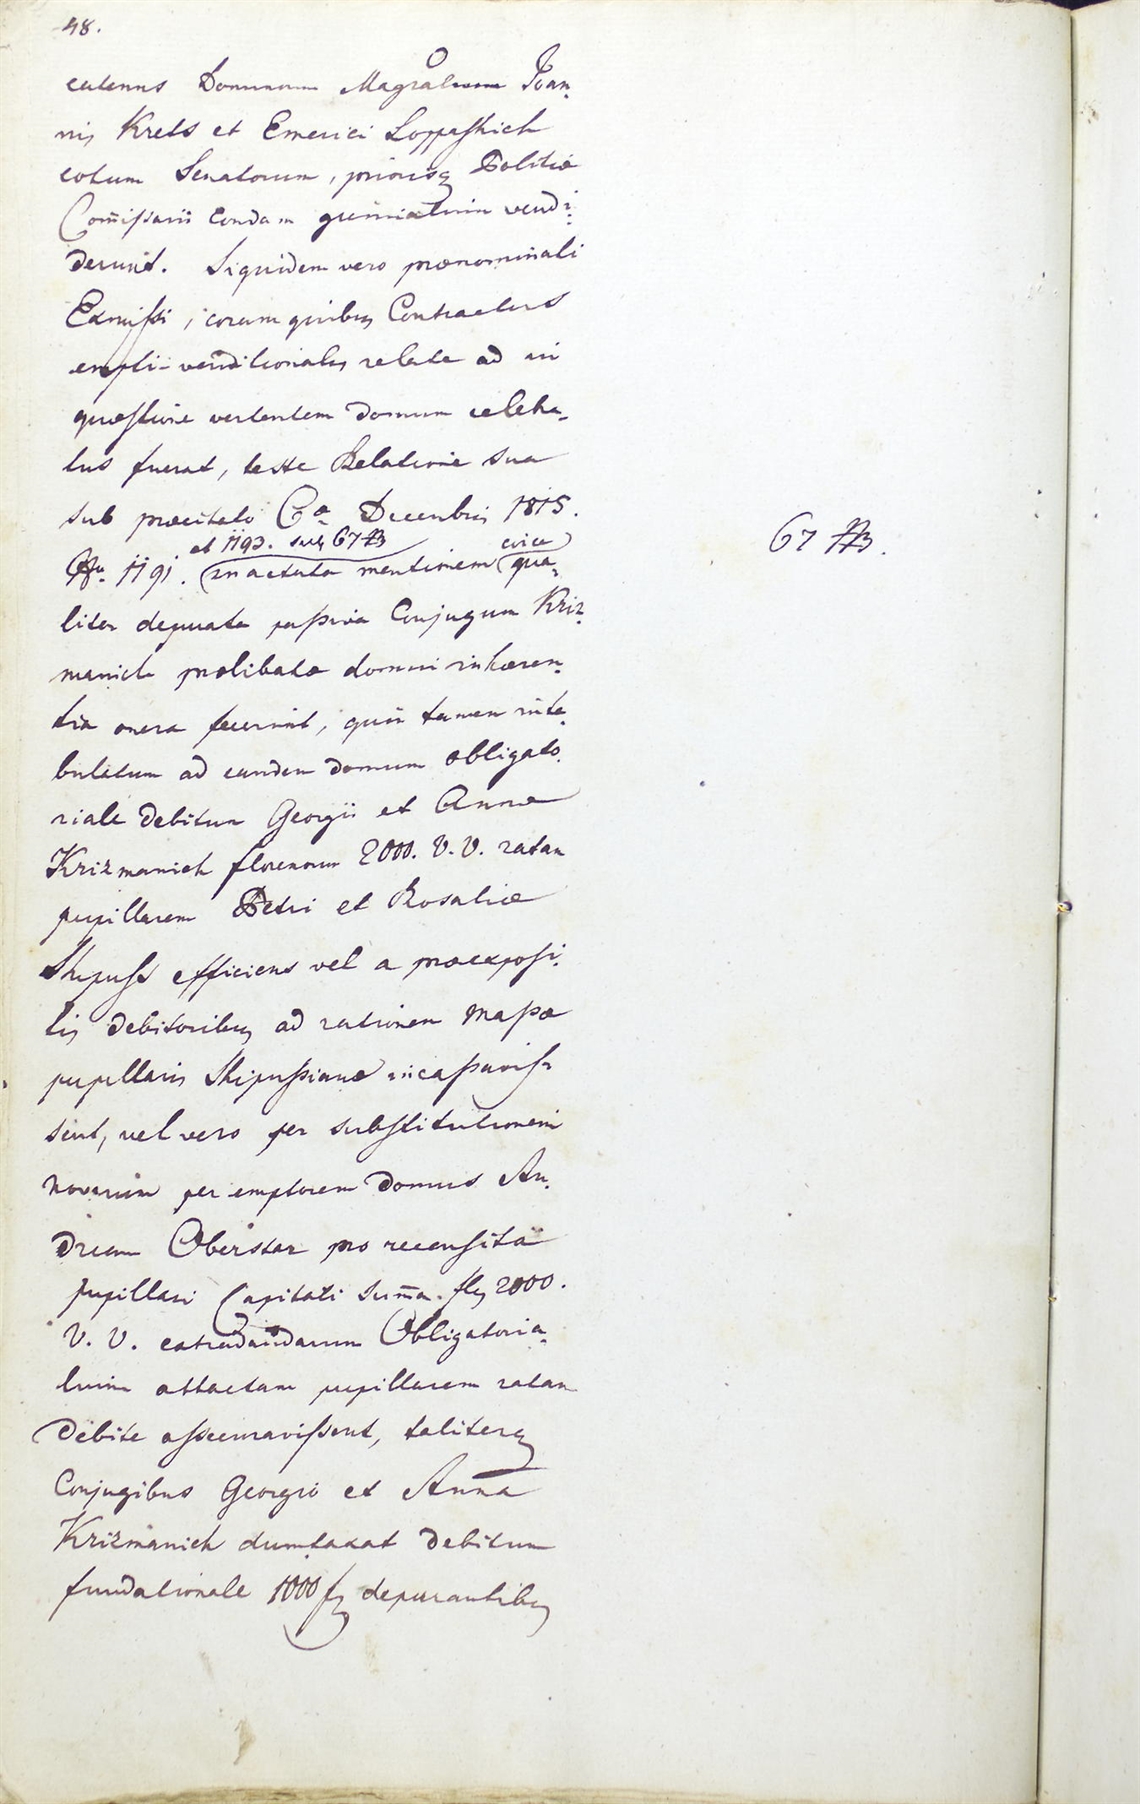 48.
eatenus Dominorum Magratium Joan-
nis Krets et Emerici Loppashich
cotum Senatorum, priorisq Politiæ
Com̃issarii condam gremialium vendi-
derunt. Siquidem vero prænominati
Exmissi, coram quibus Contractus
empti-venditionalis relate ad in
quæstione vertentem domum celebra-
tus fuerat, teste Relatione sua
sub præcitato 6a Decembris 1815.
et 1193. sub 67 B
Nro 1191. inactuata mentionem circa qua-
67 B.
liter depurata passiva Conjugum Kriz-
manich prælibatæ domui inhæren-
tia onera fecerint, quin tamen inta-
bulatum ad eandem domum obligato-
riale debitum Georgii et Annæ
Krizmanich florenorum 2000. V. V. ratam
pupillarem Petri et Rosaliæ
Skipuss efficiens vel a præexposi-
tis debitoribus ad rationem Massæ
pupillaris Skipussianæ incassavis-
sent, vel vero per substitutionem
novarum per emptorem domus An-
dream Oberstar pro recensita
pupillari Capitali sum̃a fls 2000.
V. V. extradandarum Obligatoria-
lium attactam pupillarem ratam
debite assecuravissent, taliterq
Conjugibus Georgio et Anna
Krizmanich dumtaxat debitum
fundationale 1000 fs depurantibus